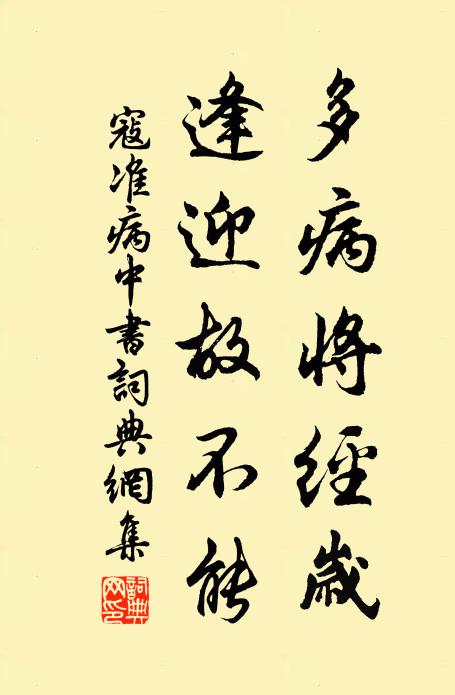 多病將經歲
逢迎故不能
寇准病中書詞典網集
詞典網印